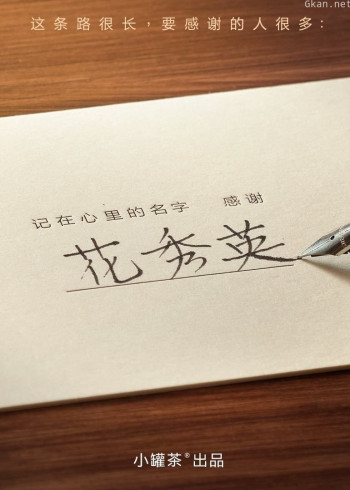 Gkan.net
这条路很长，要感谢的人很多：
记在心里的名字 感谢
花秀英
小罐茶®出品